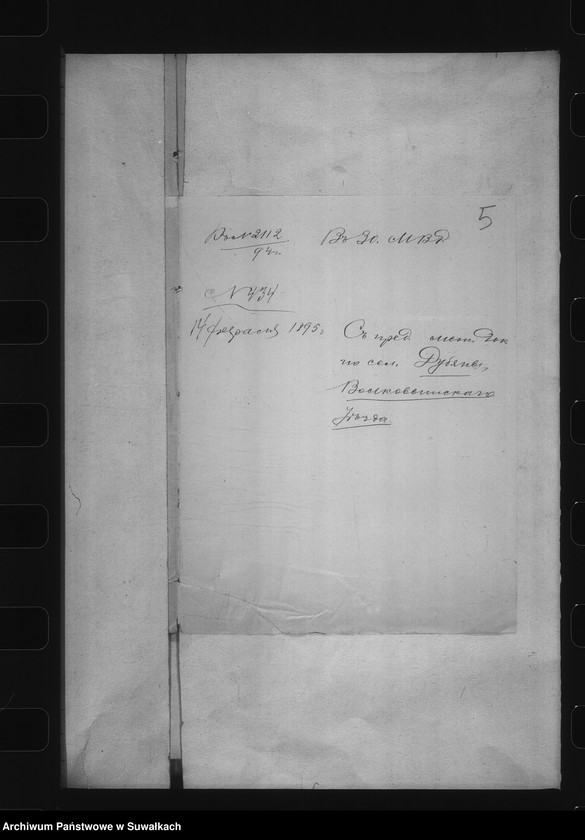 5
Дѣло № 2112
94 г.
Въ Зо. МВД
№ 434
14 февраля 1895 г.
Съ пред. док
по сел.
Волковыскаго
уѣзда
Archiwum Państwowe w Suwałkach